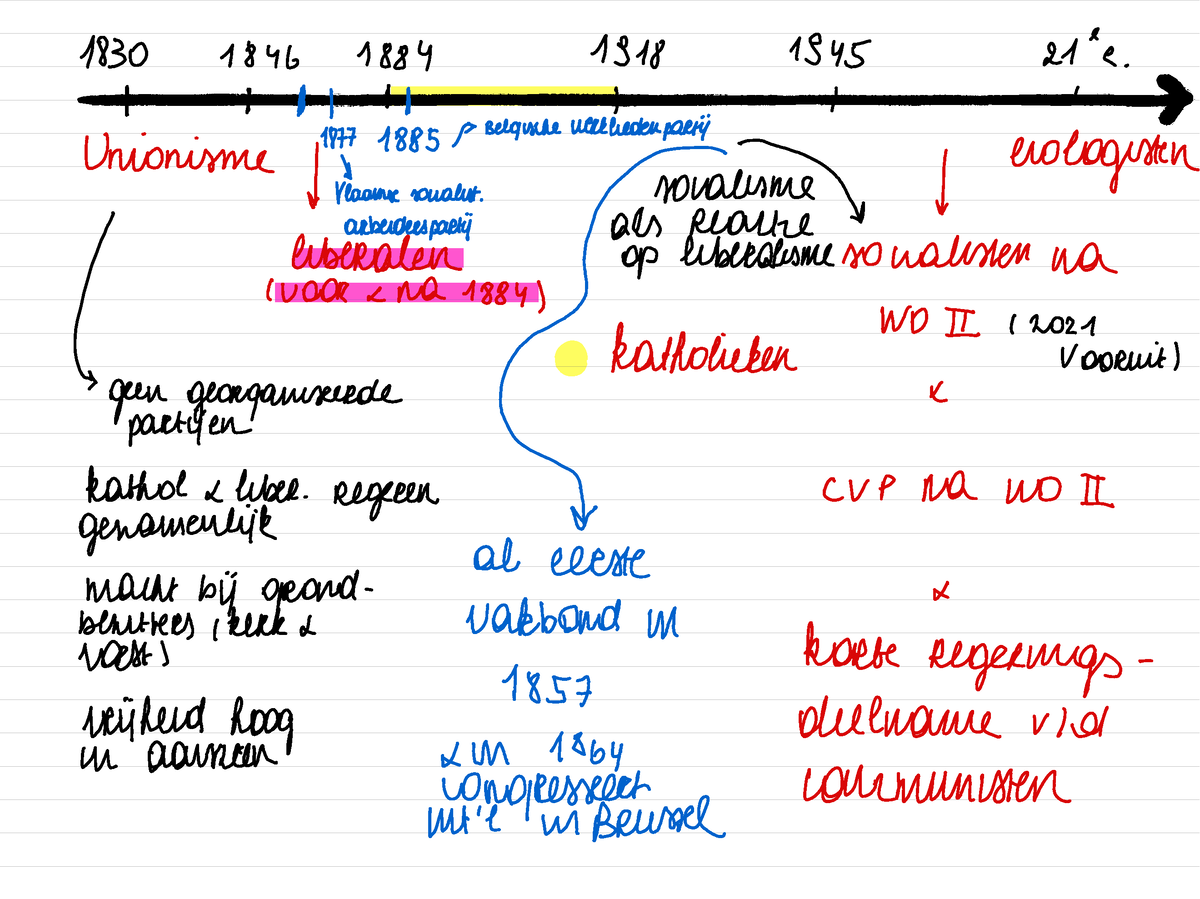 1830 1846 1884 1918 1945 21ᵉ e.
1877 1885 Belgische werkliedenpartij
Unionisme
ecologisten
Vlaamse socialist.
arbeiderspartij
liberalen
(voor & na 1884)
socialisme
als reactie
op liberalisme
socialisten na
WO II (2021
Vooruit)
katholieken
&
geen georganiseerde
partijen
kathol & liber. regeren
gezamenlijk
CVP na WO II
al eerste
vakbond in
1857
& in 1864
congresrecht
int'l in Brussel
macht bij grond-
bezitters (kerk &
vorst)
&
korte regerings-
deelname v/d
communisten
vrijheid hoog
in aanzien